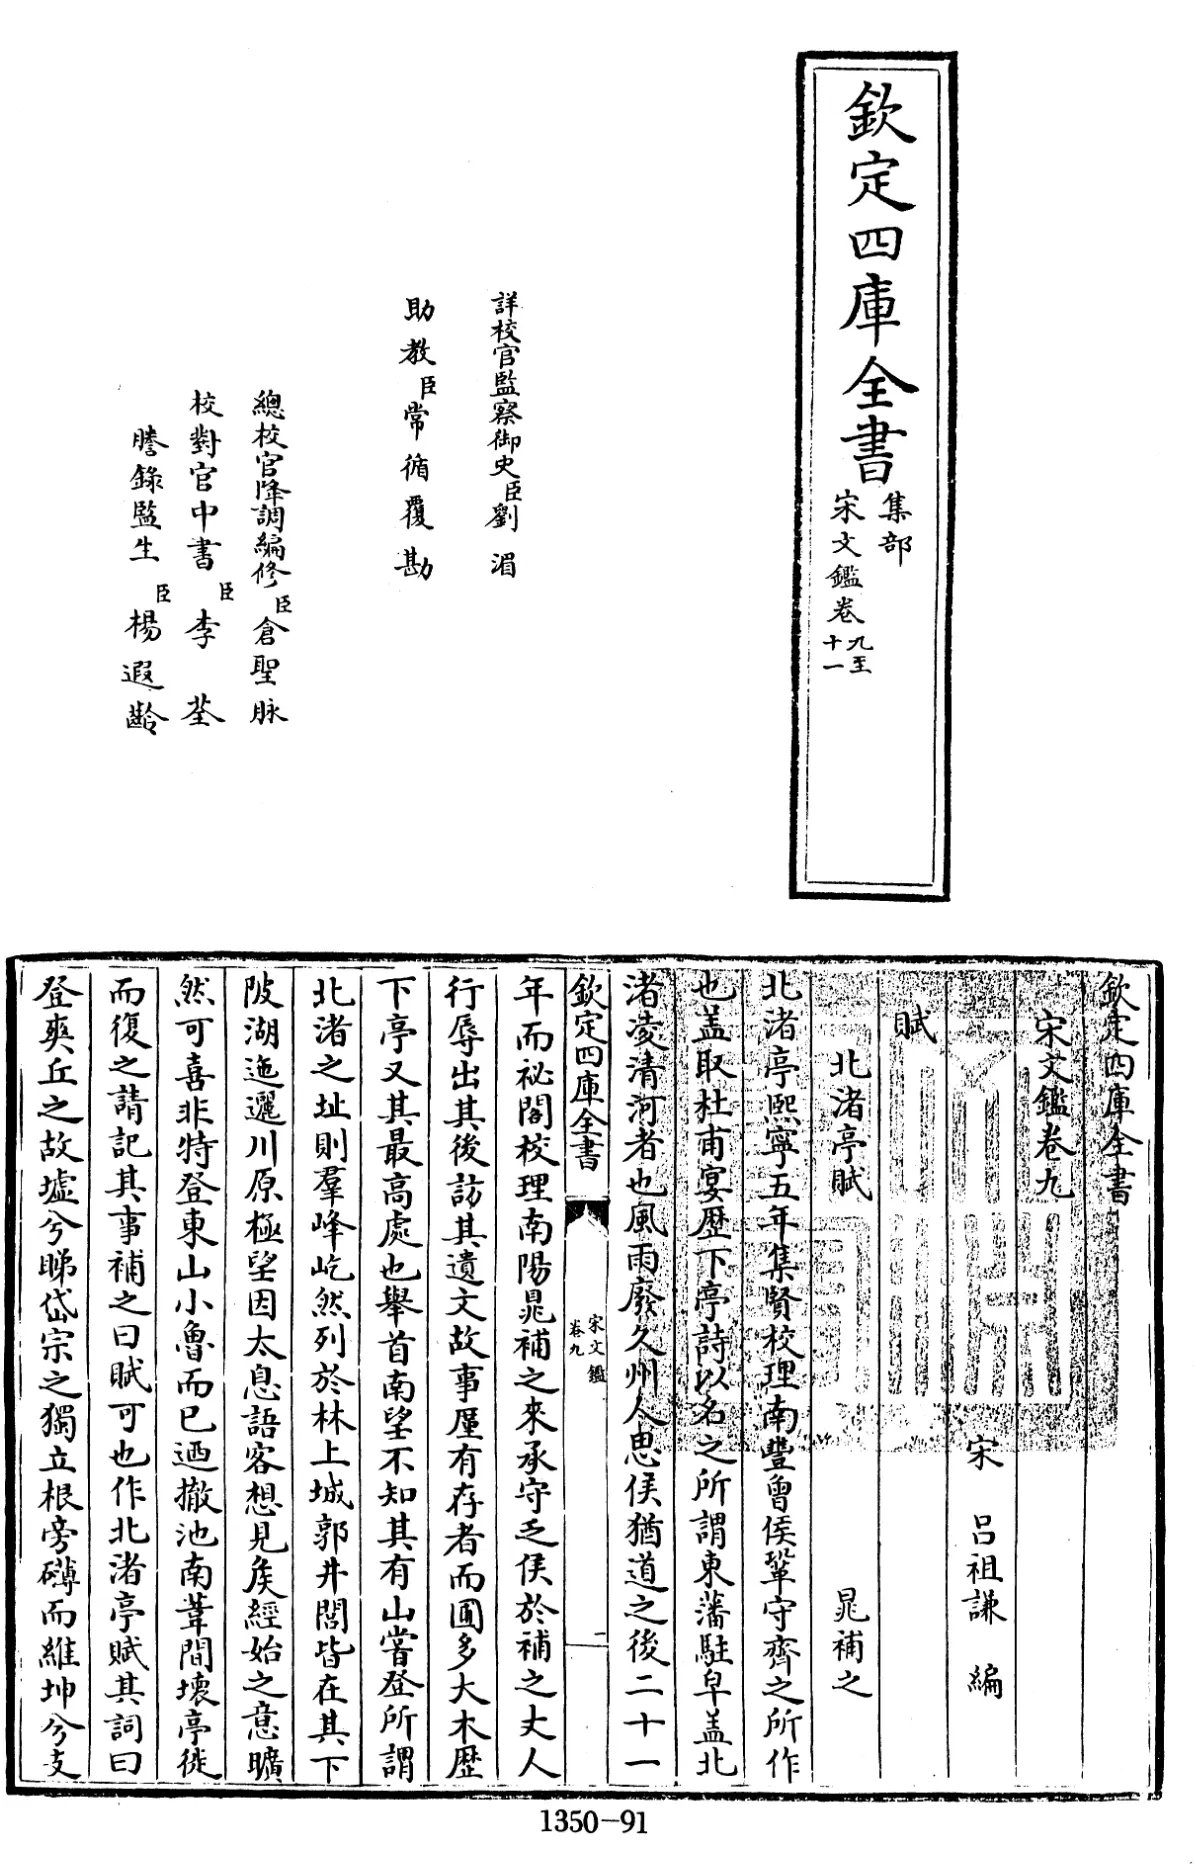 欽定四庫全書
集部
宋文鑑卷九至十一
詳校官監察御史臣劉湄
助教臣常循覆勘
總校官降調編修臣倉聖脉
校對官中書臣李荃
謄錄監生臣楊遐齡
欽定四庫全書
宋文鑑卷九
宋 呂祖謙 編
賦
北渚亭賦 晁補之
北渚亭熙寧五年集賢校理南豐曾侯鞏守齊之所作
也盖取杜甫宴歷下亭詩以名之所謂東藩駐皁盖北
渚凌清河者也風雨廢久州人思侯猶道之後二十一
欽定四庫全書
宋文鑑
卷九
一
年而祕閣校理南陽晁補之來承守乏侯於補之丈人
行辱出其後訪其遺文故事厪有存者而圃多大木歷
下亭又其最高處也舉首南望不知其有山嘗登所謂
北渚之址則羣峰屹然列於林上城郭井閭皆在其下
陂湖迤邐川原極望因太息語客想見矦經始之意曠
然可喜非特登東山小魯而已迺撤池南葦間壊亭徙
而復之請記其事補之曰賦可也作北渚亭賦其詞曰
登爽丘之故墟兮睇岱宗之獨立根旁礴而維坤兮支
1350-91